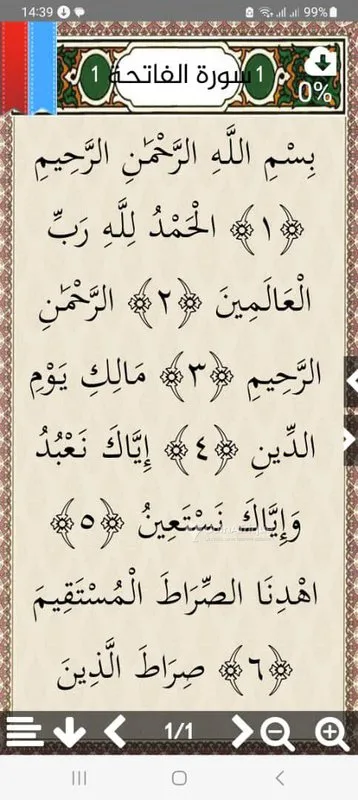 14:39
99%
1 سورة الفاتحة 1
0%
بِسْمِ اللَّهِ الرَّحْمَٰنِ الرَّحِيمِ
﴿١﴾ الْحَمْدُ لِلَّهِ رَبِّ
الْعَالَمِينَ ﴿٢﴾ الرَّحْمَٰنِ
الرَّحِيمِ ﴿٣﴾ مَالِكِ يَوْمِ
الدِّينِ ﴿٤﴾ إِيَّاكَ نَعْبُدُ
وَإِيَّاكَ نَسْتَعِينُ ﴿٥﴾
اهْدِنَا الصِّرَاطَ الْمُسْتَقِيمَ
﴿٦﴾ صِرَاطَ الَّذِينَ
1/1